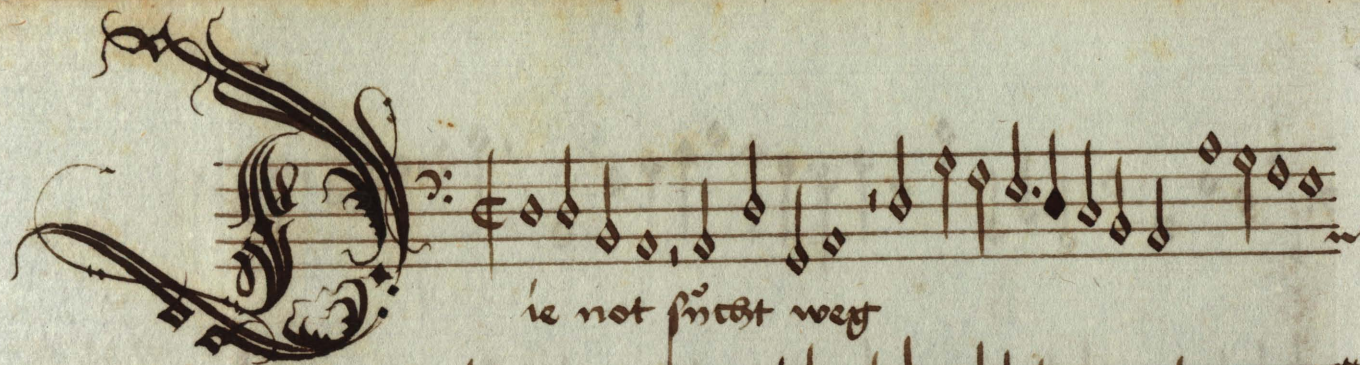 Die not sůcht weg